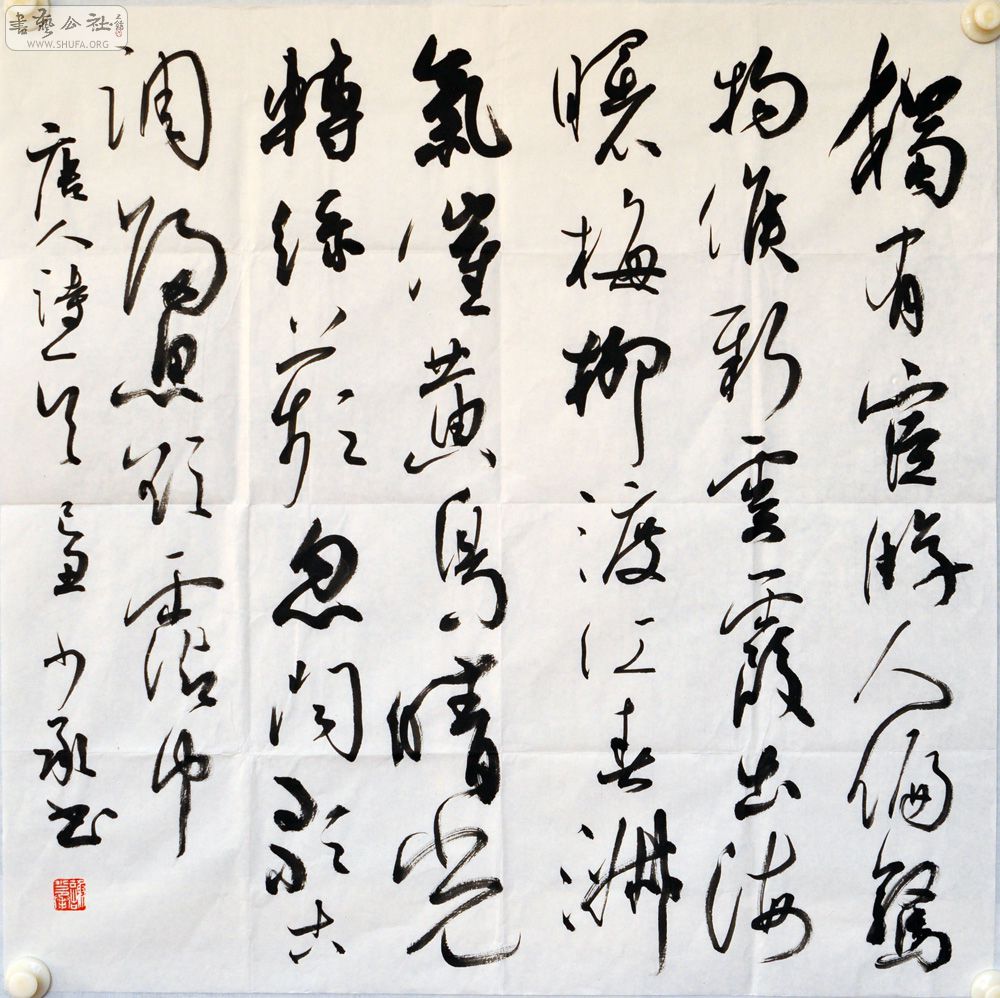 書藝公社
WWW.SHUFA.ORG
獨有宦游人偏驚
物候新雲霞出海
曙梅柳渡江春淑
氣催黃鳥晴光
轉綠蘋忽聞歌古
調歸思欲霑巾
唐人詩一首 己丑 少承书